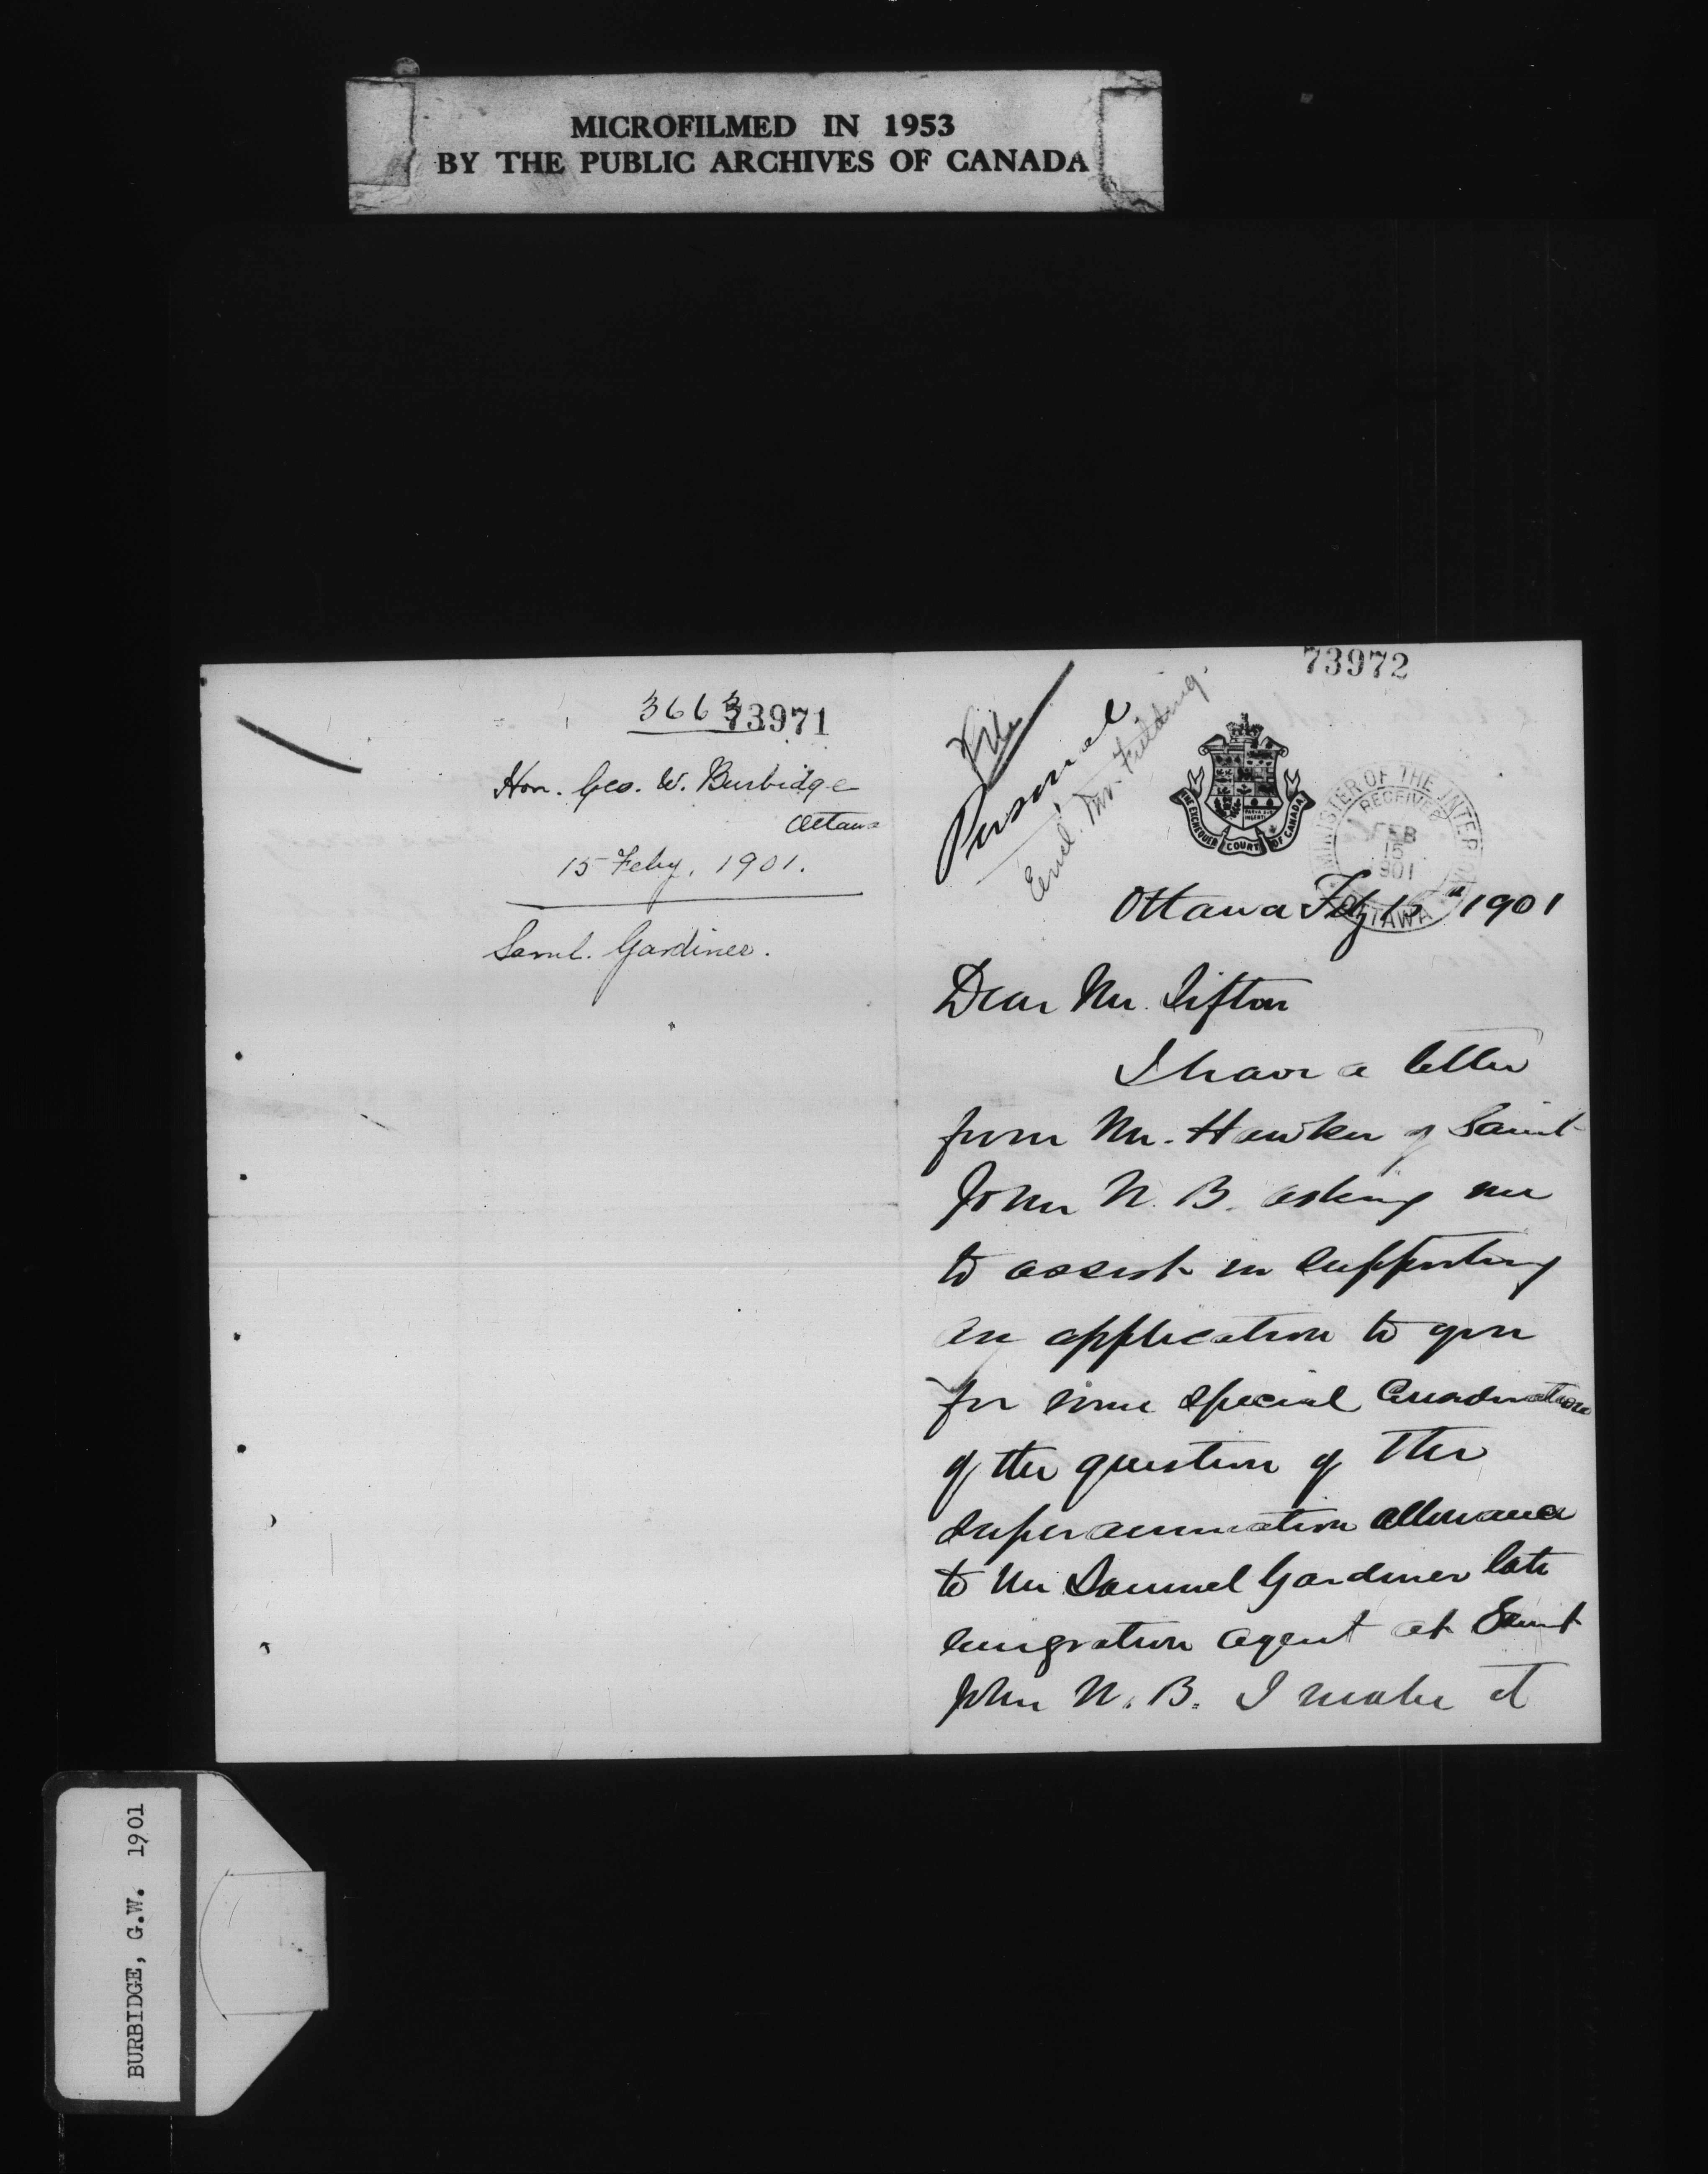 MICROFILMED IN 1953
BY THE PUBLIC ARCHIVES OF CANADA
3663
73971
Hon. Geo. W. Burbidge
Ottawa
15 Feby. 1901.
Saml. Gardiner.
73972
File
Personal
Encl. Mr. Fielding.
THE EXCHEQUER COURT OF CANADA
MINISTER OF THE INTERIOR
RECEIVED
FEB
15
1901
OTTAWA
Ottawa Feby 15th 1901
Dear Mr. Sifton
I have a letter
from Mr. Hawker of Saint
John N. B. asking me
to assist in supporting
an application to you
for some special consideration
of the question of the
superannuation allowance
to Mr Samuel Gardiner late
emigration agent at Saint
John N. B. I make it
BURBIDGE, G.W. 1901